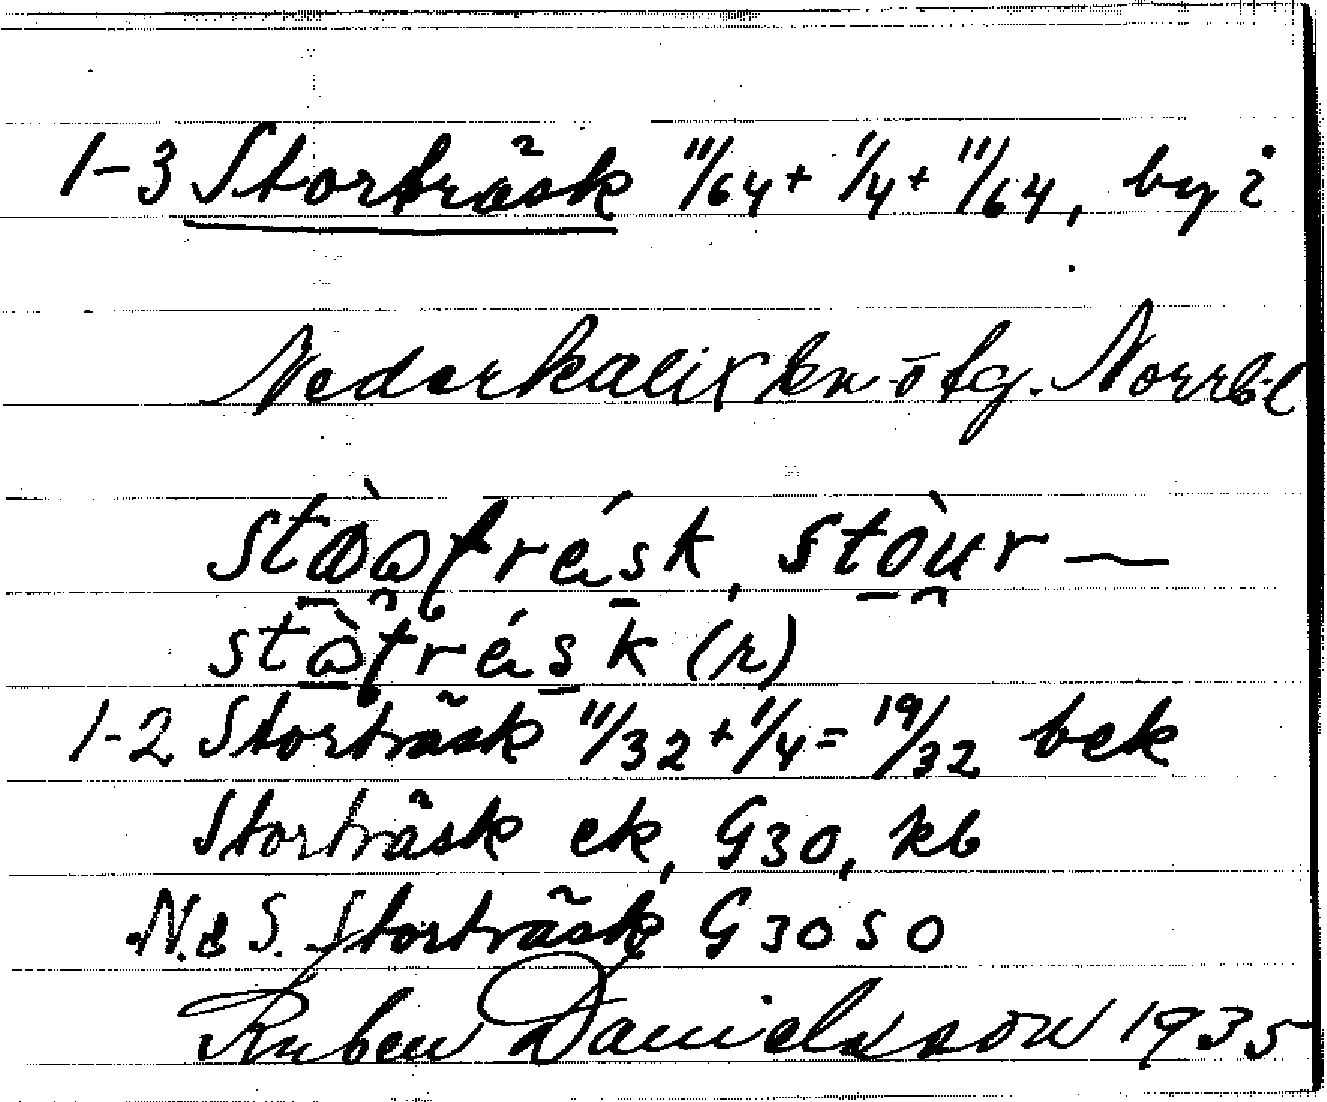 1-3 Storträsk 11/64 + 1/4 + 11/64, by i
Nederkalix kn o tg. Norrb. l
stòotrésk, stòur—
stòtrésk (r)
1-2 Storträsk 11/32 + 1/4 = 19/32 bek
Storträsk ek, G30, kb
N. & S. Storträsk G30SO
Ruben Danielsson 1935